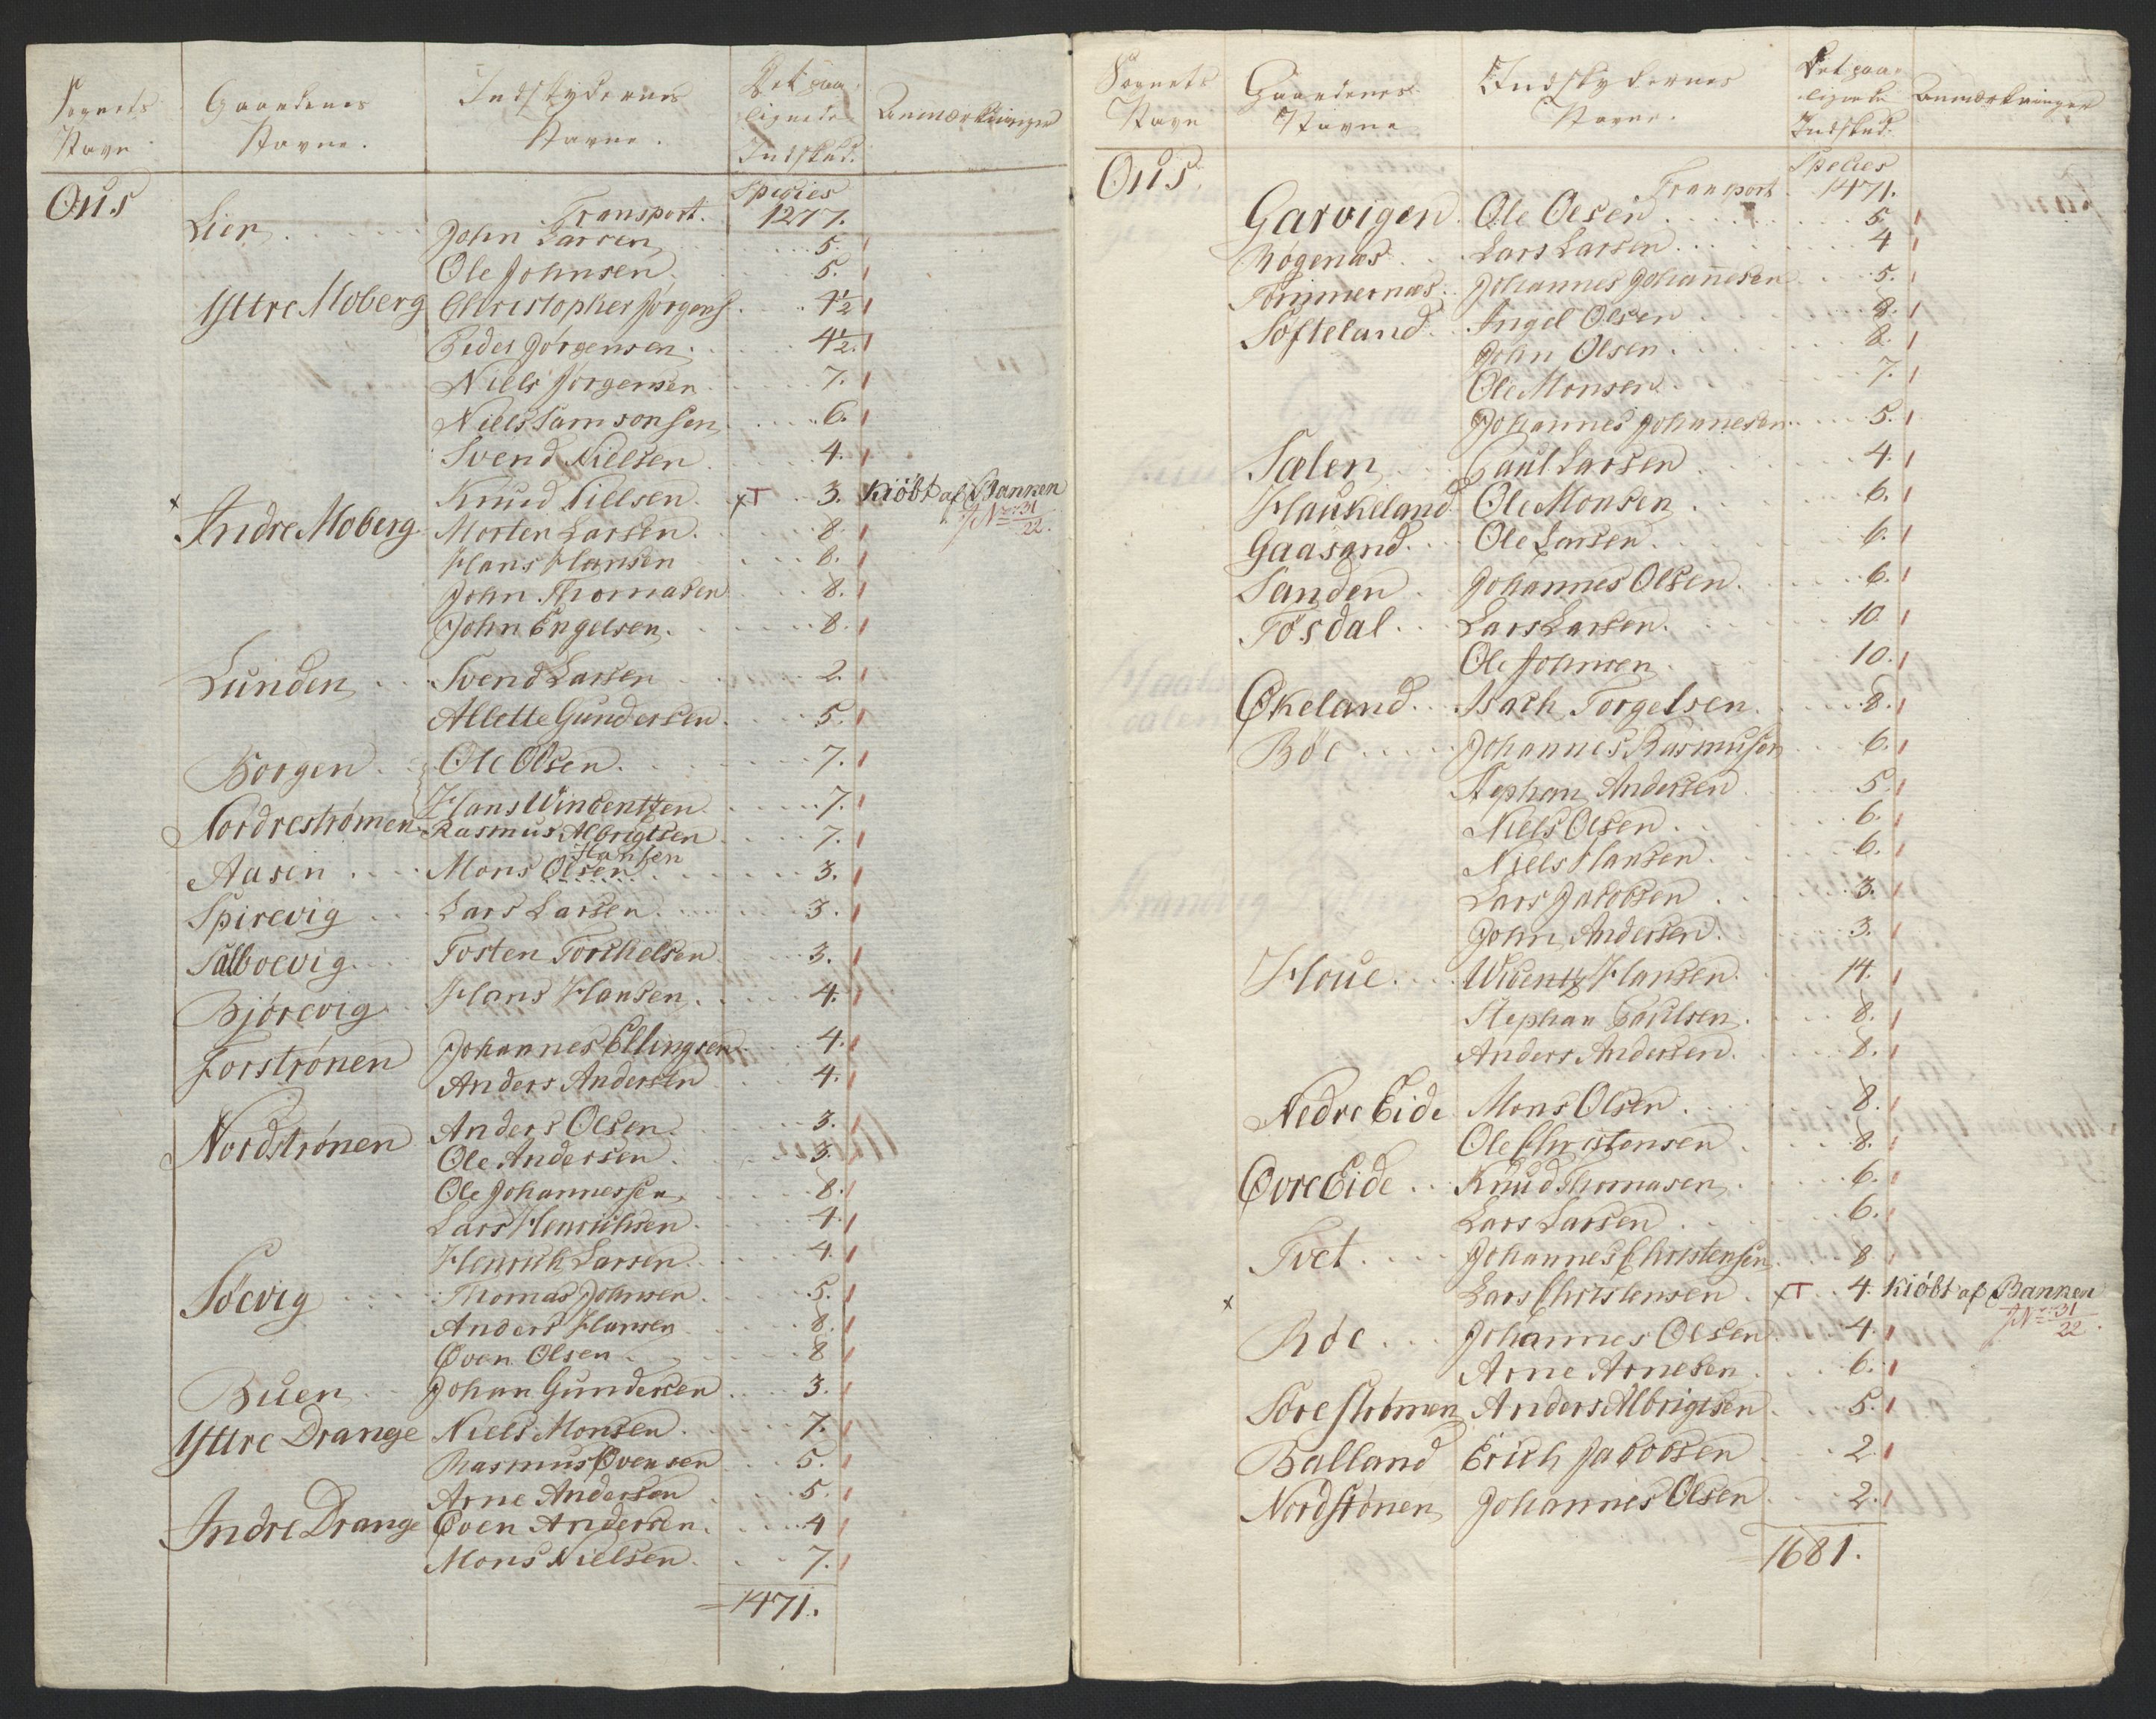 Sognets Navn	Gaardenes Navne.	Indskydernes Navne.	Det paalignede Indskud.	Anmærkninger
Ous	Species
Transport. 1277.
Lien John Larsen 5.
Ole Johnsen 5.
Yttre Moberg Christopher Jørgens 4½
Peder Jørgensen 4½.
Niels Jørgensen 7.
Niels Samsonsen 6.
Svend Nielsen 4.
x Knud Nielsen xT 3. Kiöbt af Banken
Indre Moberg Morten Larsen. 8. No 31/22.
Hans Hansen 8.
John Thomasen 8.
John Engelsen. 8.
Lunden Svend Larsen 2.
Allette Gundersen 5.
Borgen Ole Olsen. 7.
Hans Windentzen 7.
Nordrestrømen Rasmus Albrigtsen 7.
Hansen
Aasen Mons Olsen 3.
Spirevig Lars Larsen 3.
Salboevig Tosten Torchelsen 3.
Bjørevig Hans Hansen 4.
Forstrønen Johannes Ellingsen 4.
Anders Andersen 4.
Nordstrønen Anders Olsen. 3.
Ole Andersen 3.
Ole Johannessen 8.
Lars Henrichsen 4.
Henrich Larsen 4.
Söevig Thomas Johnsen 5.
Anders Hansen 8.
Øven Olsen 8
Buen Johan Gundersen 3.
Yttre Drange Niels Monsen 7.
Rasmus Øvensen 5.
Arne Andersen 5.
Indre Drange Øven Andersen. 4
Mons Nielsen 7.
1471.
Sognets Navn	Gaardenes Navne	Indskydernes Navne.	Det paalignede Indskud.	Anmærkninger
Ous	Species
Transport 1471.
Garvigen Ole Olsen 5.
Røgenæs Lars Larsen 4
Tømmernæs Johannes Johanesen 5.
Søfteland Ingel Olsen 8.
John Olsen 8.
Ole Monsen 7.
Johannes Johanesen 5.
Sælen Paul Larsen 4.
Haukeland Ole Monsen 6.
Gaasand Ole Larsen 6.
Sanden Johannes Olsen. 6.
Tøsdal Lars Larsen. 10.
Ole Johnsen 10.
Økeland Isach Torgelsen 8.
Bøe Johannes Rasmusen 6.
Stephan Andersen 5.
Niels Olsen 6.
Niels Hansen 6.
Lars Jacobsen 3.
John Andersen 3.
Houe Widentz Hansen 14.
Stephan Paulsen 8.
Anders Andersen. 8.
Nedre Eide Mons Olsen 8.
Ole Christensen 8.
Øvre Eide Knud Thomasen 6.
Lars Larsen 6.
Tvet Johannes Christensen 8
x Lars Christensen xT 4. Kiöbt af Banken
Røe Johannes Olsen 4. No 31/22.
Arne Arnesen 6.
Sørestrømen Anders Albrigtsen 5.
Balland Erich Jacobsen 2.
Nordstønen Johannes Olsen 2.
1681.